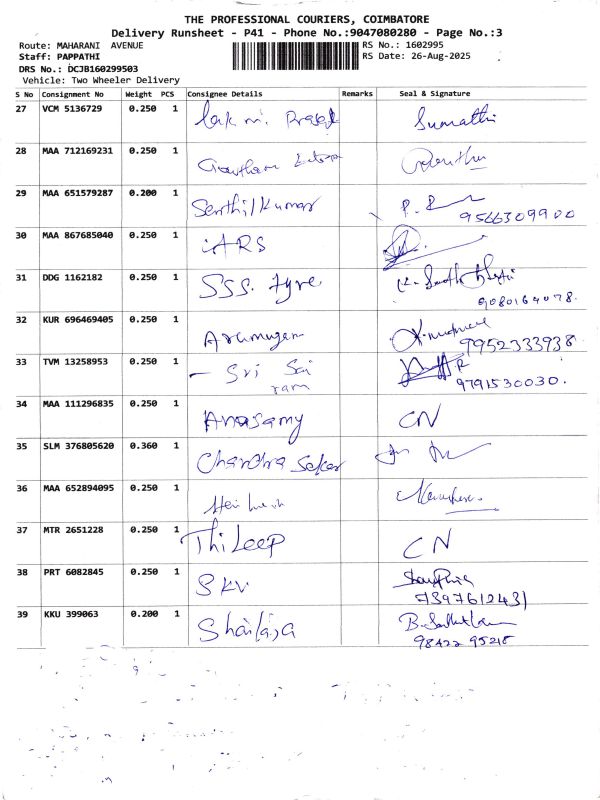 THE PROFESSIONAL COURIERS, COIMBATORE
Delivery Runsheet - P41 - Phone No.:9047080280 - Page No.:3
Route: MAHARANI AVENUE RS No.: 1602995
Staff: PAPPATHI RS Date: 26-Aug-2025
DRS No.: DCJB160299503
Vehicle: Two Wheeler Delivery
S No Consignment No Weight PCS Consignee Details Remarks Seal & Signature
27 VCM 5136729 0.250 1 Sumathi
28 MAA 712169231 0.250 1 Gowtham
29 MAA 651579287 0.200 1 Senthil Kumar
9566309900
30 MAA 867685040 0.250 1 ARS
31 DDG 1162182 0.250 1 SSS. tyre
9080164078.
32 KUR 696469405 0.250 1 Arumugam
9952333938
33 TVM 13258953 0.250 1 - Sri Sai
ram
9791530030.
34 MAA 111296835 0.250 1 CN
35 SLM 376805620 0.360 1 Chandra Sekar
36 MAA 652894095 0.250 1
37 MTR 2651228 0.250 1 ThiLeep CN
38 PRT 6082845 0.250 1 SKV
7397612431
39 KKU 399063 0.200 1 Shailaja
98422 95218